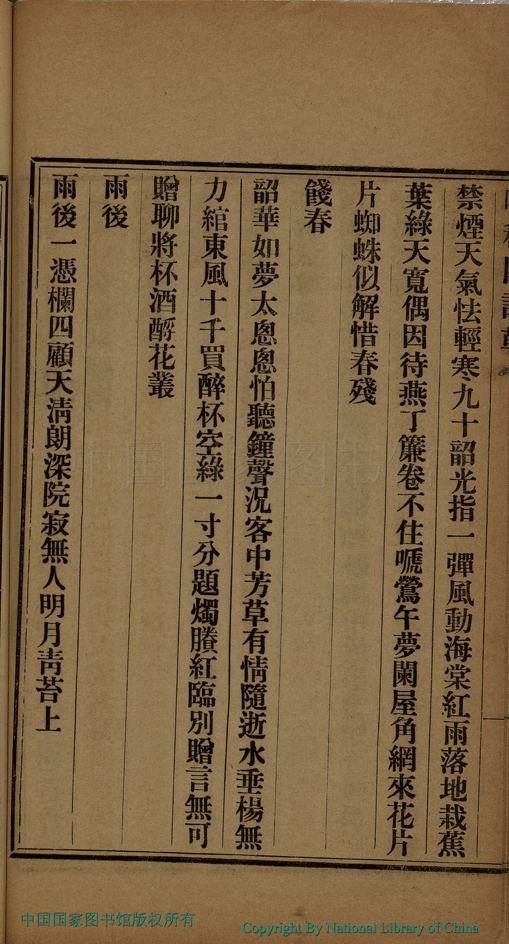 禁煙天氣怯輕寒九十韶光指一彈風動海棠紅雨落地栽蕉
葉綠天寬偶因待燕丁簾卷不住嗁鶯午夢闌屋角網來花片
片蜘蛛似解惜春殘
餞春
韶華如夢太悤悤怕聽鐘聲況客中芳草有情隨逝水垂楊無
力綰東風十千買醉杯空綠一寸分題燭賸紅臨別贈言無可
贈聊將杯酒酹花叢
雨後
雨後一憑欄四顧天淸朗深院寂無人明月靑苔上
中国国家图书馆版权所有
Copyright By National Library of China